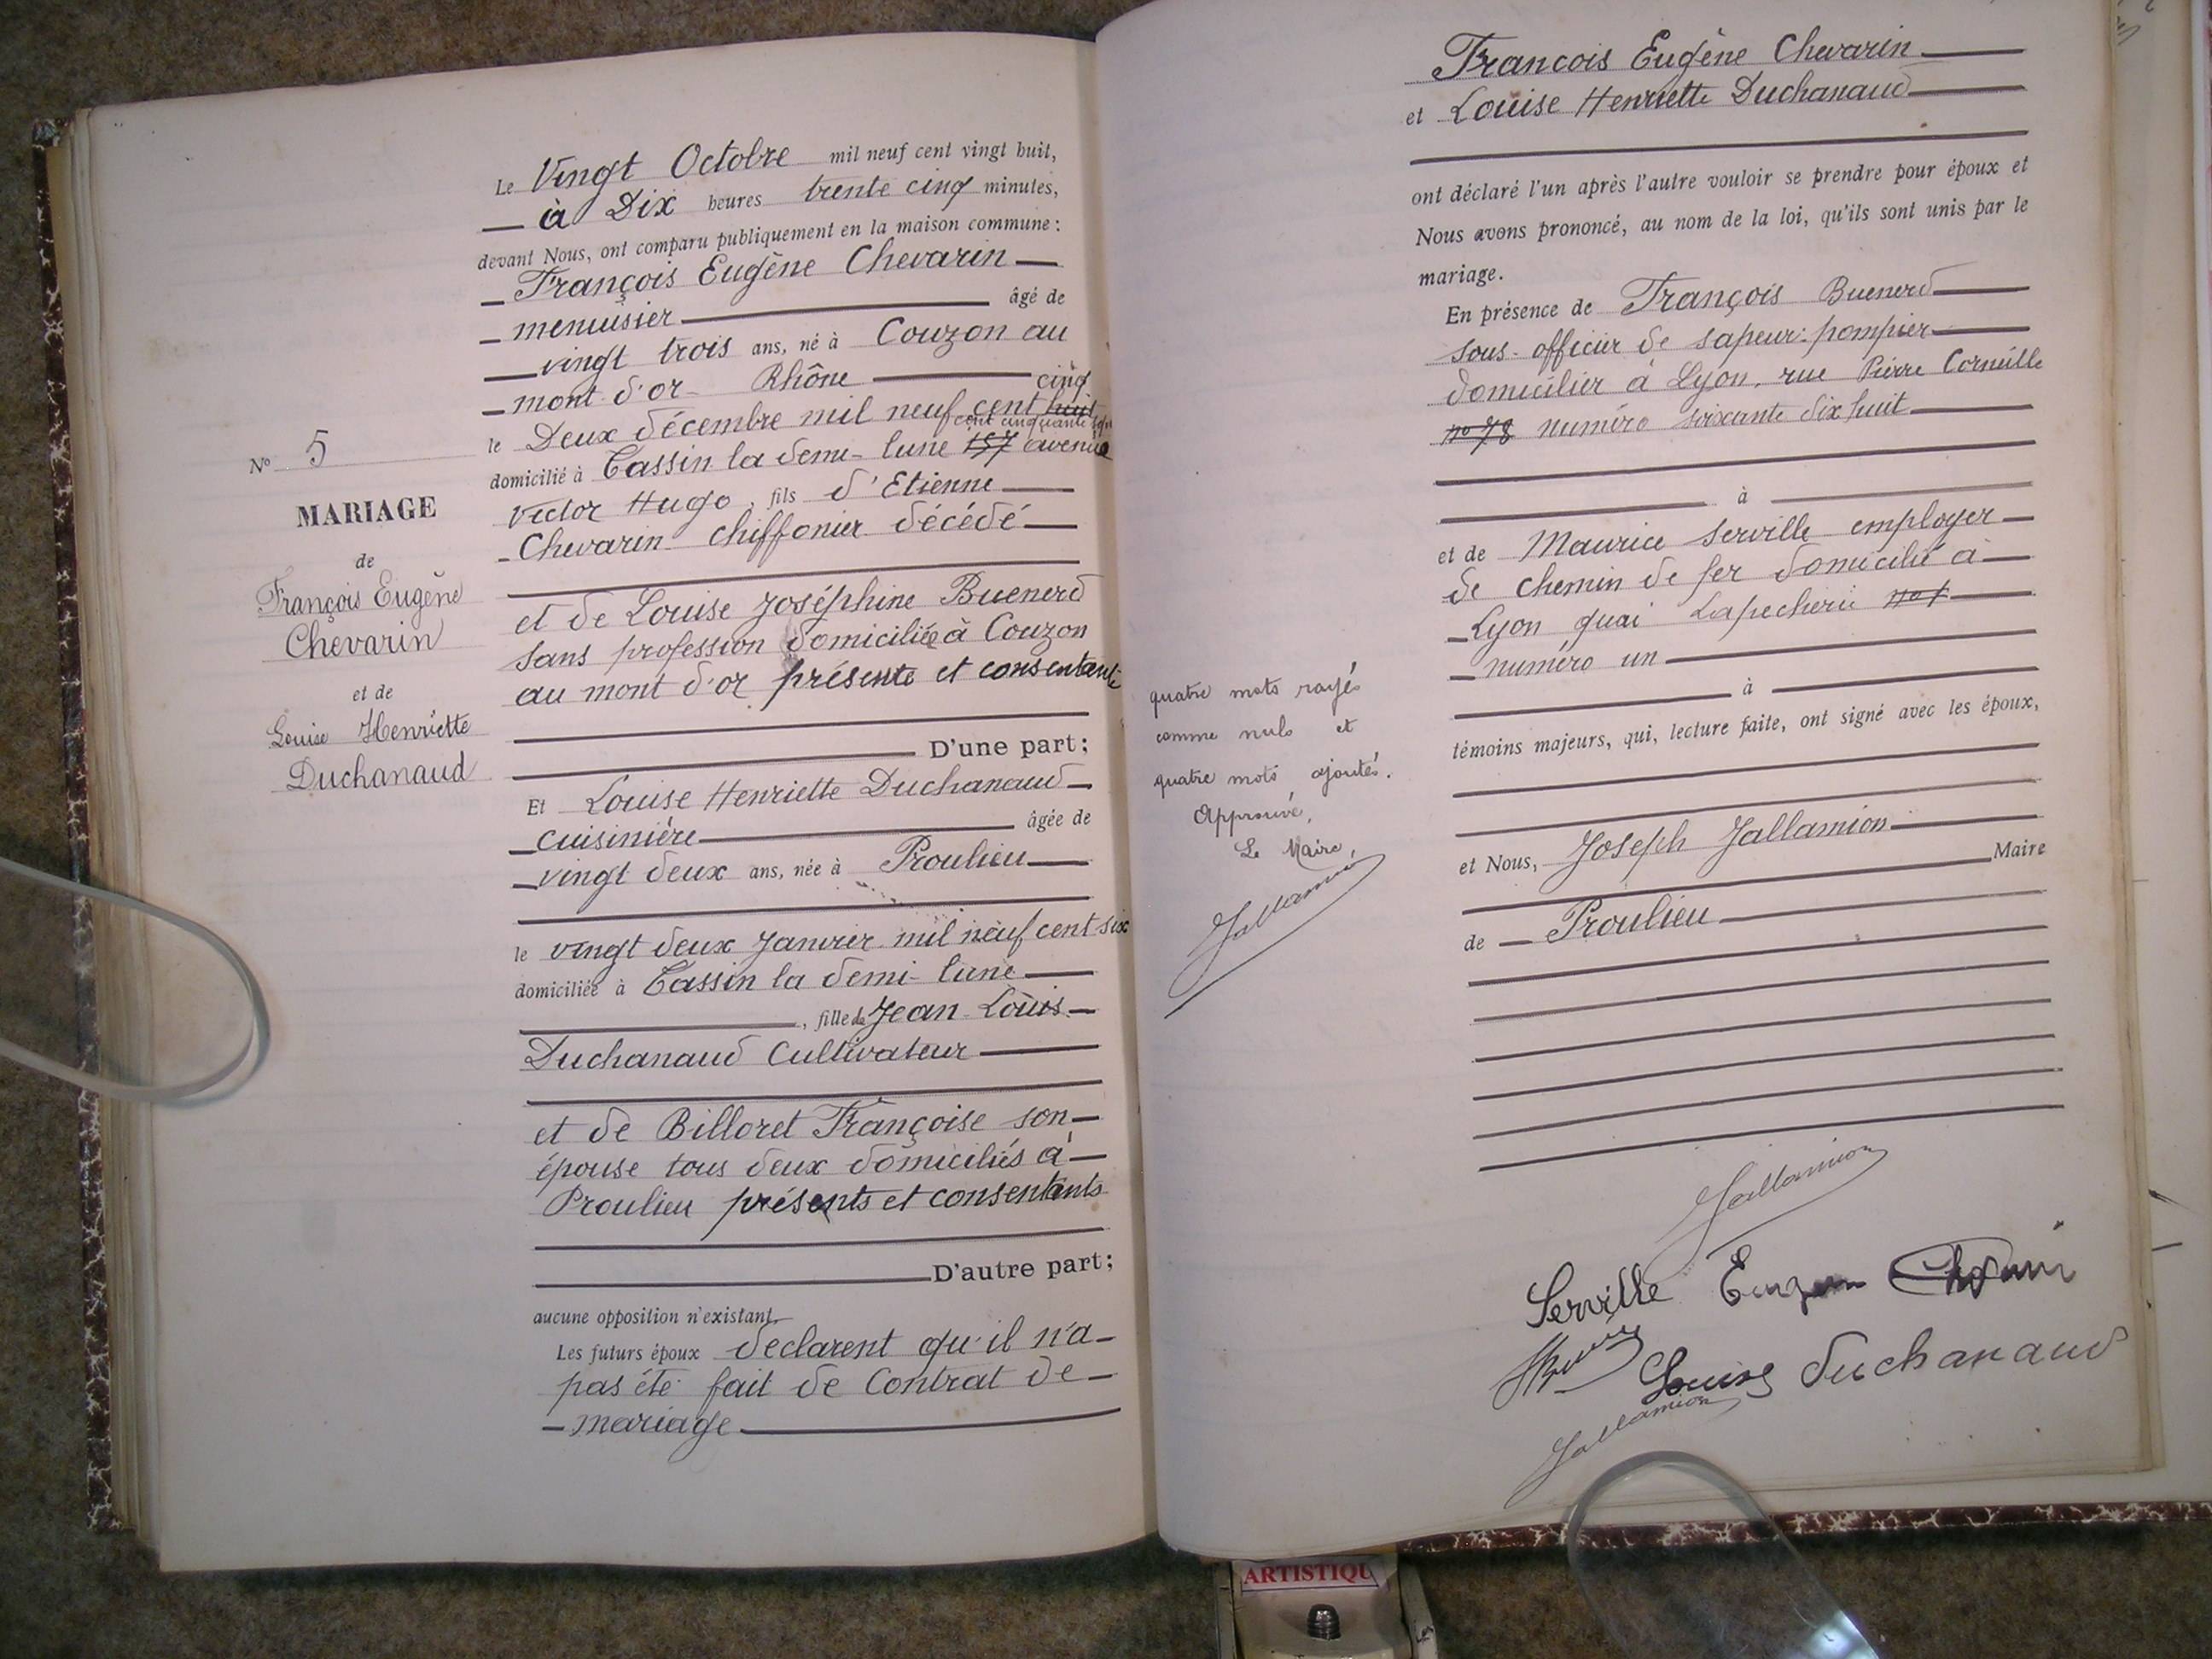 Le Vingt Octobre mil neuf cent vingt huit,
à Dix heures trente cinq minutes,
devant Nous, ont comparu publiquement en la maison commune :
François Eugène Chevarin
menuisier âgé de
vingt trois ans, né à Couzon au
mont d'or Rhône
cinq
le Deux décembre mil neuf cent huit
cent cinquante sept
domicilié à Tassin la demi-lune 157 avenue
Victor Hugo, fils d'Etienne
Chevarin chiffonier décédé
et de Louise Joséphine Buenerd
sans profession domiciliée à Couzon
au mont d'or présente et consentante
D'une part ;
Et Louise Henriette Duchanaud
cuisinière âgée de
vingt deux ans, née à Proulieu
le vingt deux Janvier mil neuf cent six
domiciliée à Tassin la demi-lune
, fille de Jean Louis
Duchanaud Cultivateur
et de Billoret Françoise son
épouse tous deux domiciliés à
Proulieu présents et consentants
D'autre part ;
aucune opposition n'existant.
Les futurs époux declarent qu'il n'a
pas été fait de Contrat de
mariage
No 5
MARIAGE
de
François Eugène
Chevarin
et de
Louise Henriette
Duchanaud
Francois Eugène Chevarin
et Louise Henriette Duchanaud
ont déclaré l'un après l'autre vouloir se prendre pour époux et
Nous avons prononcé, au nom de la loi, qu'ils sont unis par le
mariage.
En présence de François Buenerd
sous-officier de sapeur-pompier
domicilier à Lyon, rue Pierre Corneille
no 78 numéro soixante dix huit
à
et de Maurice Serville employer
de chemin de fer domicilié à
Lyon quai Lapecherie no 1
numéro un
à
témoins majeurs, qui, lecture faite, ont signé avec les époux,
et Nous, Joseph Jallamion
Maire
de Proulieu
quatre mots rayés
comme nuls et
quatre mots ajoutés.
Approuvé,
Le Maire,
Jallamion
Jallamion
Serville Eugene
Louise Duchanaud
Jallamion
ARTISTIQU